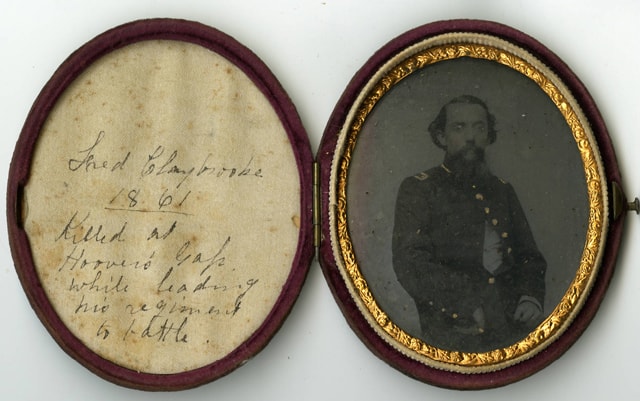 Fred Claybrooke
1861
Killed at
Hoover's Gap
while leading
his regiment
to battle.